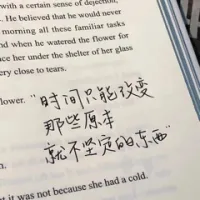 with a certain sense of dejection,
. He believed that he would never
morning all these familiar tasks
and when he watered the flower for
ace her under the shelter of her glass
ery close to tears.
flower.
“时间只能改变
那些原本
就不坚定的东西”
n.
t it was not because she had a cold.